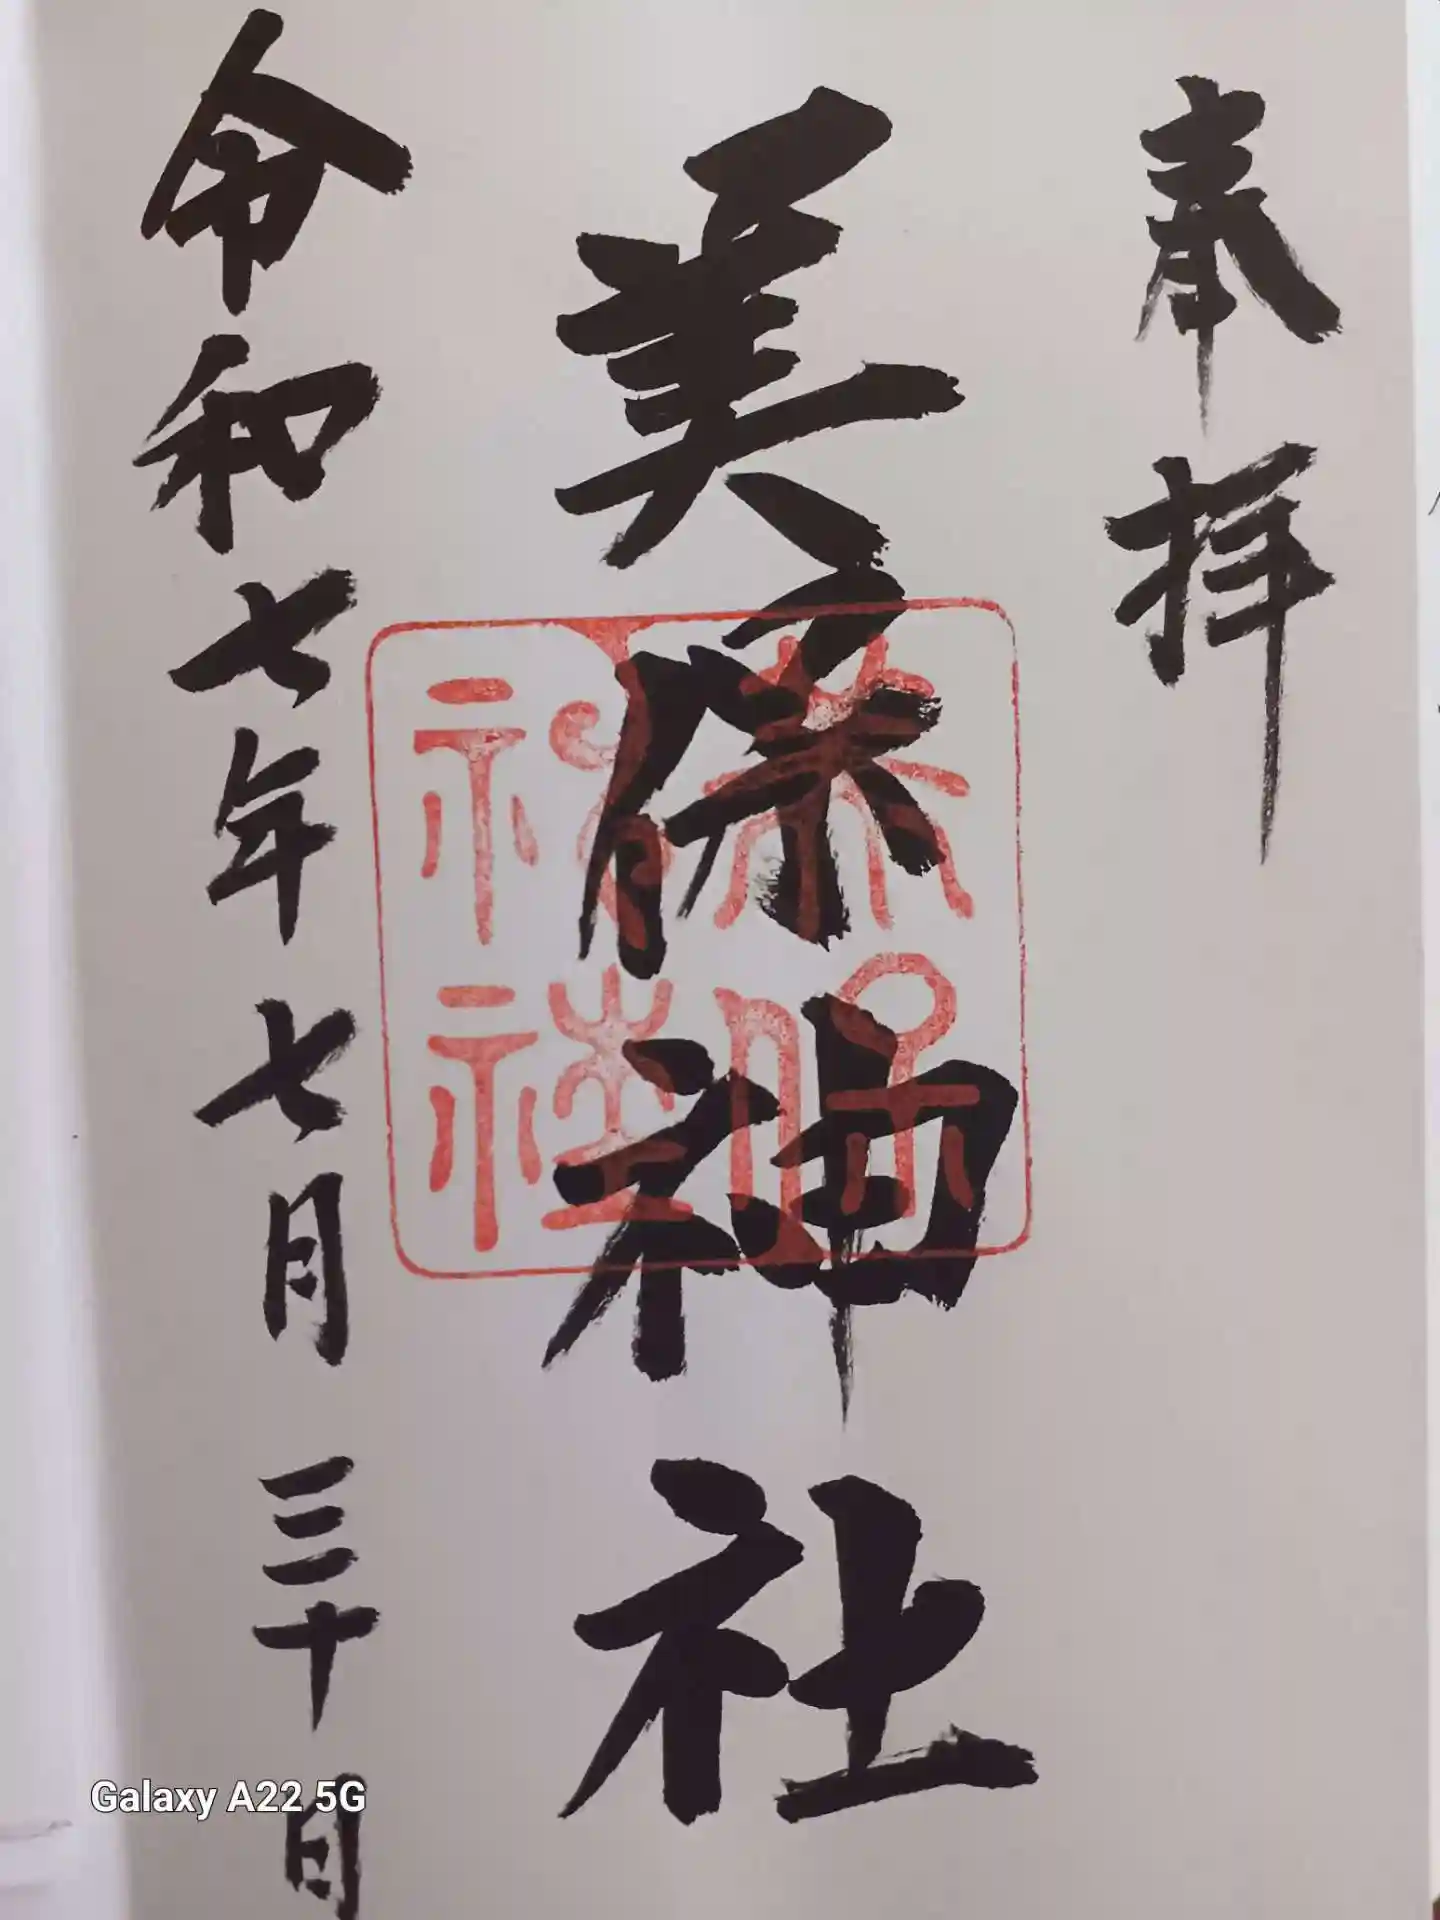 奉拝
美保神社
美保神社
令和七年七月三十日
Galaxy A22 5G